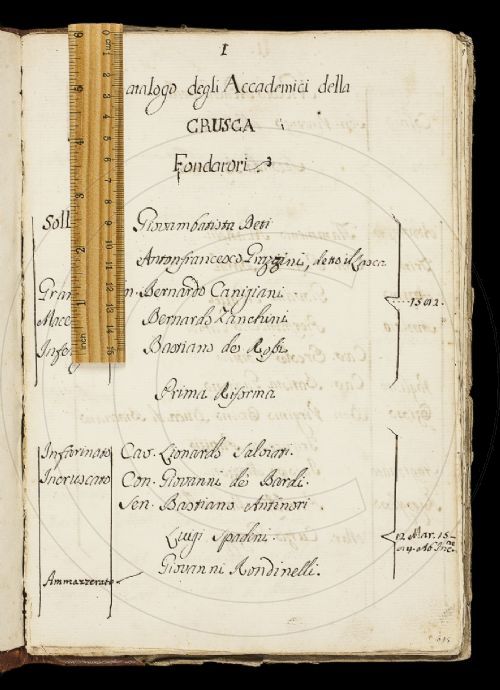 I
atalogo degli Accademici della
CRUSCA
Fondatori
Soll Giovambatista Deti
Antonfrancesco Grazzini, detto il Lasca
Gram n. Bernardo Canigiani 1582.
Mace Bernardo Zanchini
Infer Bastiano de Rossi
Prima Riforma
Infarinato Cav. Lionardo Salviati.
Incruscato Con. Giovanni de Bardi.
Sen. Bastiano Antinori
Luigi Spadini. 12 Mar. 15
Ammazzerato Giovanni Rondinelli.